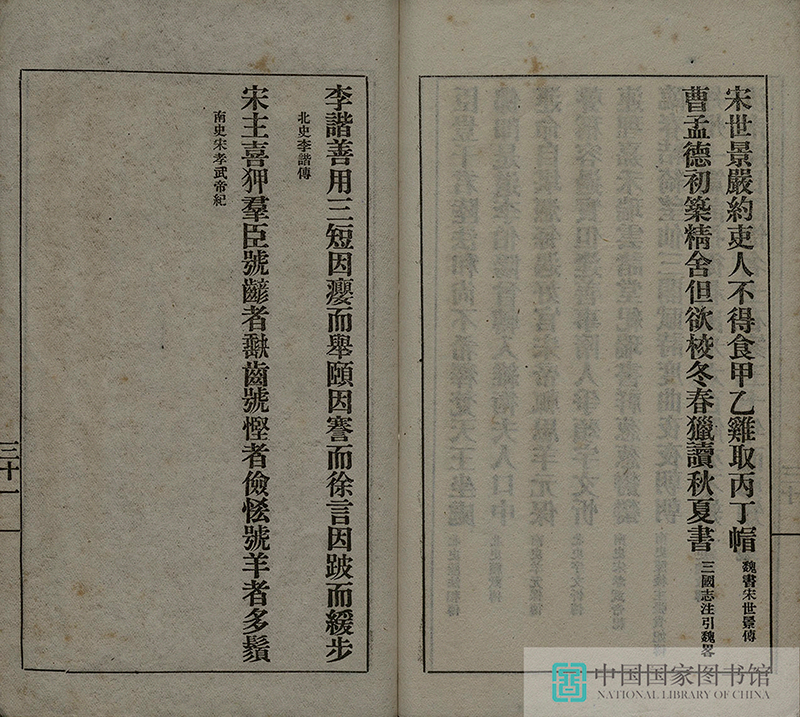 宋世景嚴約吏人不得食甲乙雞取丙丁帽 魏書宋世景傳
曹孟德初築精舍但欲校冬春獵讀秋夏書 三國志注引魏畧
李諧善用三短因癭而舉頤因謇而徐言因跛而緩步
北史李諧傳
宋主喜狎羣臣號齴者齾齒號慳者儉恡號羊者多鬚
南史宋孝武帝紀
三十一
中国国家图书馆
NATIONAL LIBRARY OF CHINA